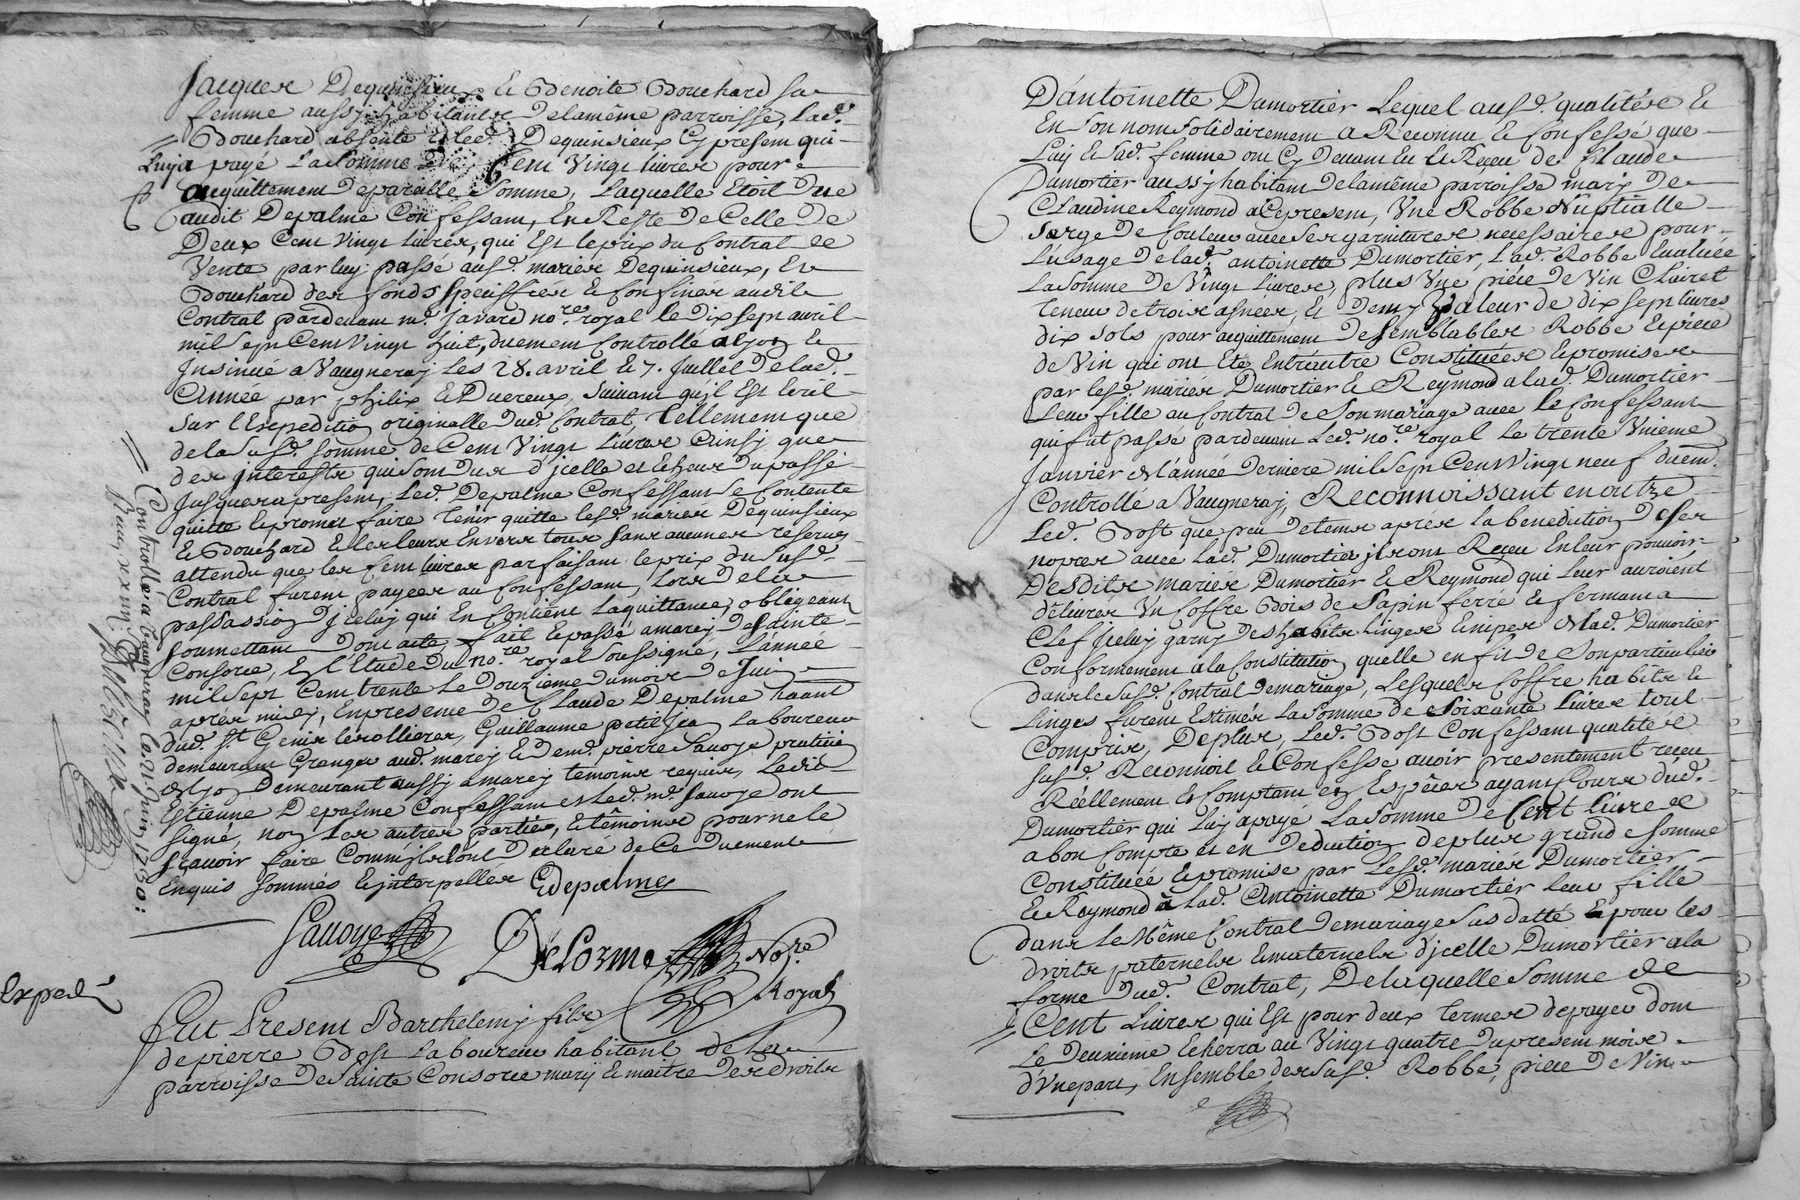 Jacques Dequinsieux & Benoite Bouchard sa
femme aussy habitants delamême parroisse, Lad.
Bouchard absente & led. Dequinsieux cy present qui
Luy a payé La somme de Cent Vingt livres pour
acquittement de pareille somme, Laquelle étoit due
audit Depalme Confessant, En Reste de Celle de
Deux Cent Vingt Livres, qui Est le prix du Contrat de
Vente par luy passé ausd. mariez Dequinsieux, Et
Bouchard des fonds speciffiés & confinés audit
Contrat pardevant me. Javard nore. royal le dix sept avril
mil sept Cent Vingt huit, duement Controllé a Lyon &
Insinué a Vaugneray Les 28. avril & 7. Juillet de lad.
Année par philix & Duereux, suivant qu'il Est Ecrit
sur l'Expedition originalle dud. Contrat, Tellement que
de la susd. somme de Cent Vingt Livres Ainsy que
des interests qui sont dus d'jcelle et Echeus du passé
Jusques a present, Led. Depalme Confessant se Contente
quitte & promet faire tenir quitte lesd. mariez Dequinsieux
& Bouchard & les leurs Envers tous sans aucunes reserves
attendu que les Cent livres parfaisant le prix du susd.
Contrat furent payées au Confessant, Lors de la
passassion d'jceluy qui En Contient La quittance, obligeant
soumettant Dont acte, fait & passé a marcy de Sainte
Consorce, Ez l'Etude du nore. royal soussigné, L'année
mil sept Cent trente Le Douzieme du mois de Juin
après midy, En presence de Claude Depalme habitant
dud. St. Genis Lerollieres, Guillaume petit Jean Laboureur
demeurant Granger aud. marcy & de md. pierre Sauoye praticien
de Lyon Demeurant aussy a marcy temoins requis, Ledit
Estienne Depalme Confessant et Led. me. Sauoye ont
signé, non Les autres parties, & témoins pour ne le
sçauoir faire Comm'jls ont declaré de Ce Duement
Enquis sommés & jnterpellés Edepalme
Sauoye
DeLorme Nore.
Royal
Controllé a Vaugneray Ce 21. Juin 1730.
Expedié
Fut Present Barthelemy fils
de pierre Bost Laboureur habitant de La
parroisse de Sainte Consorce mary & maitre des droits
D'antoinette Dumortier Lequel ausd. qualités &
En son nom solidairement a Reconnu & Confessé que
Luy & sad. femme ont cy devant Eu & Reçeu de Claude
Dumortier aussy habitant delamême parroisse mary de
Claudine Reymond a Ce present, Vne Robbe Nuptialle
sarge de Couleur avec ses garnitures necessaires pour
L'usage de lad. antoinette Dumortier, Lad. Robbe Evaluée
La somme de Vingt Livres, plus Vne piéce de Vin Clairet
teneur de trois asnées, & Demy Valeur de dix sept livres
dix sols pour acquittement de semblables Robbe & piéce
de Vin qui ont Eté Entr'autre Constituées & promises
par lesd. mariez Dumortier & Reymond a lad. Dumortier
Leur fille au Contrat de son mariage avec le Confessant
qui fut passé pardevant Led. nore. royal Le trente Vnieme
Janvier de l'année derniere mil sept Cent Vingt neuf duem.
Controllé a Vaugneray, Reconnoissant en outre
Led. Bost que peu de tems aprés la benediction de ses
nopces avec Lad. Dumortier jls ont Reçeu En leur pouvoir
Desdits mariez Dumortier & Reymond qui Leur auroient
délivrés Vn Coffre Bois de Sapin ferré & fermant a
Clef Jceluy garny des habits linges & nipes de lad. Dumortier
Conformement a la Constitution quelle en fit de son particulier
dans le susd. Contrat de mariage, Lesquels Coffre habits &
Linges furent Estimés La somme de soixante Livres tout
Compris, De plus, Led. Bost Confessant qualités
susd. Reconnoit & Confesse avoir presentement reçeu
Réellement & Comptant en Especes ayant Cours dud.
Dumortier qui Luy a payé La somme de Cent livres
a bon Compte et en deduction de plus grande somme
Constituée & promise par Lesd. mariez Dumortier
& Reymond à Lad. Antoinette Dumortier Leur fille
dans Le Même Contrat de mariage sus datté & pour les
droits paternels & maternels d'jcelle Dumortier a la
forme dud. Contrat, De laquelle somme de
Cent Livres qui Est pour deux termes de payer dont
Le deuxieme Echerra au Vingt quatre du present mois
d'Vne part, Ensemble des susd. Robbe, piéce de Vin